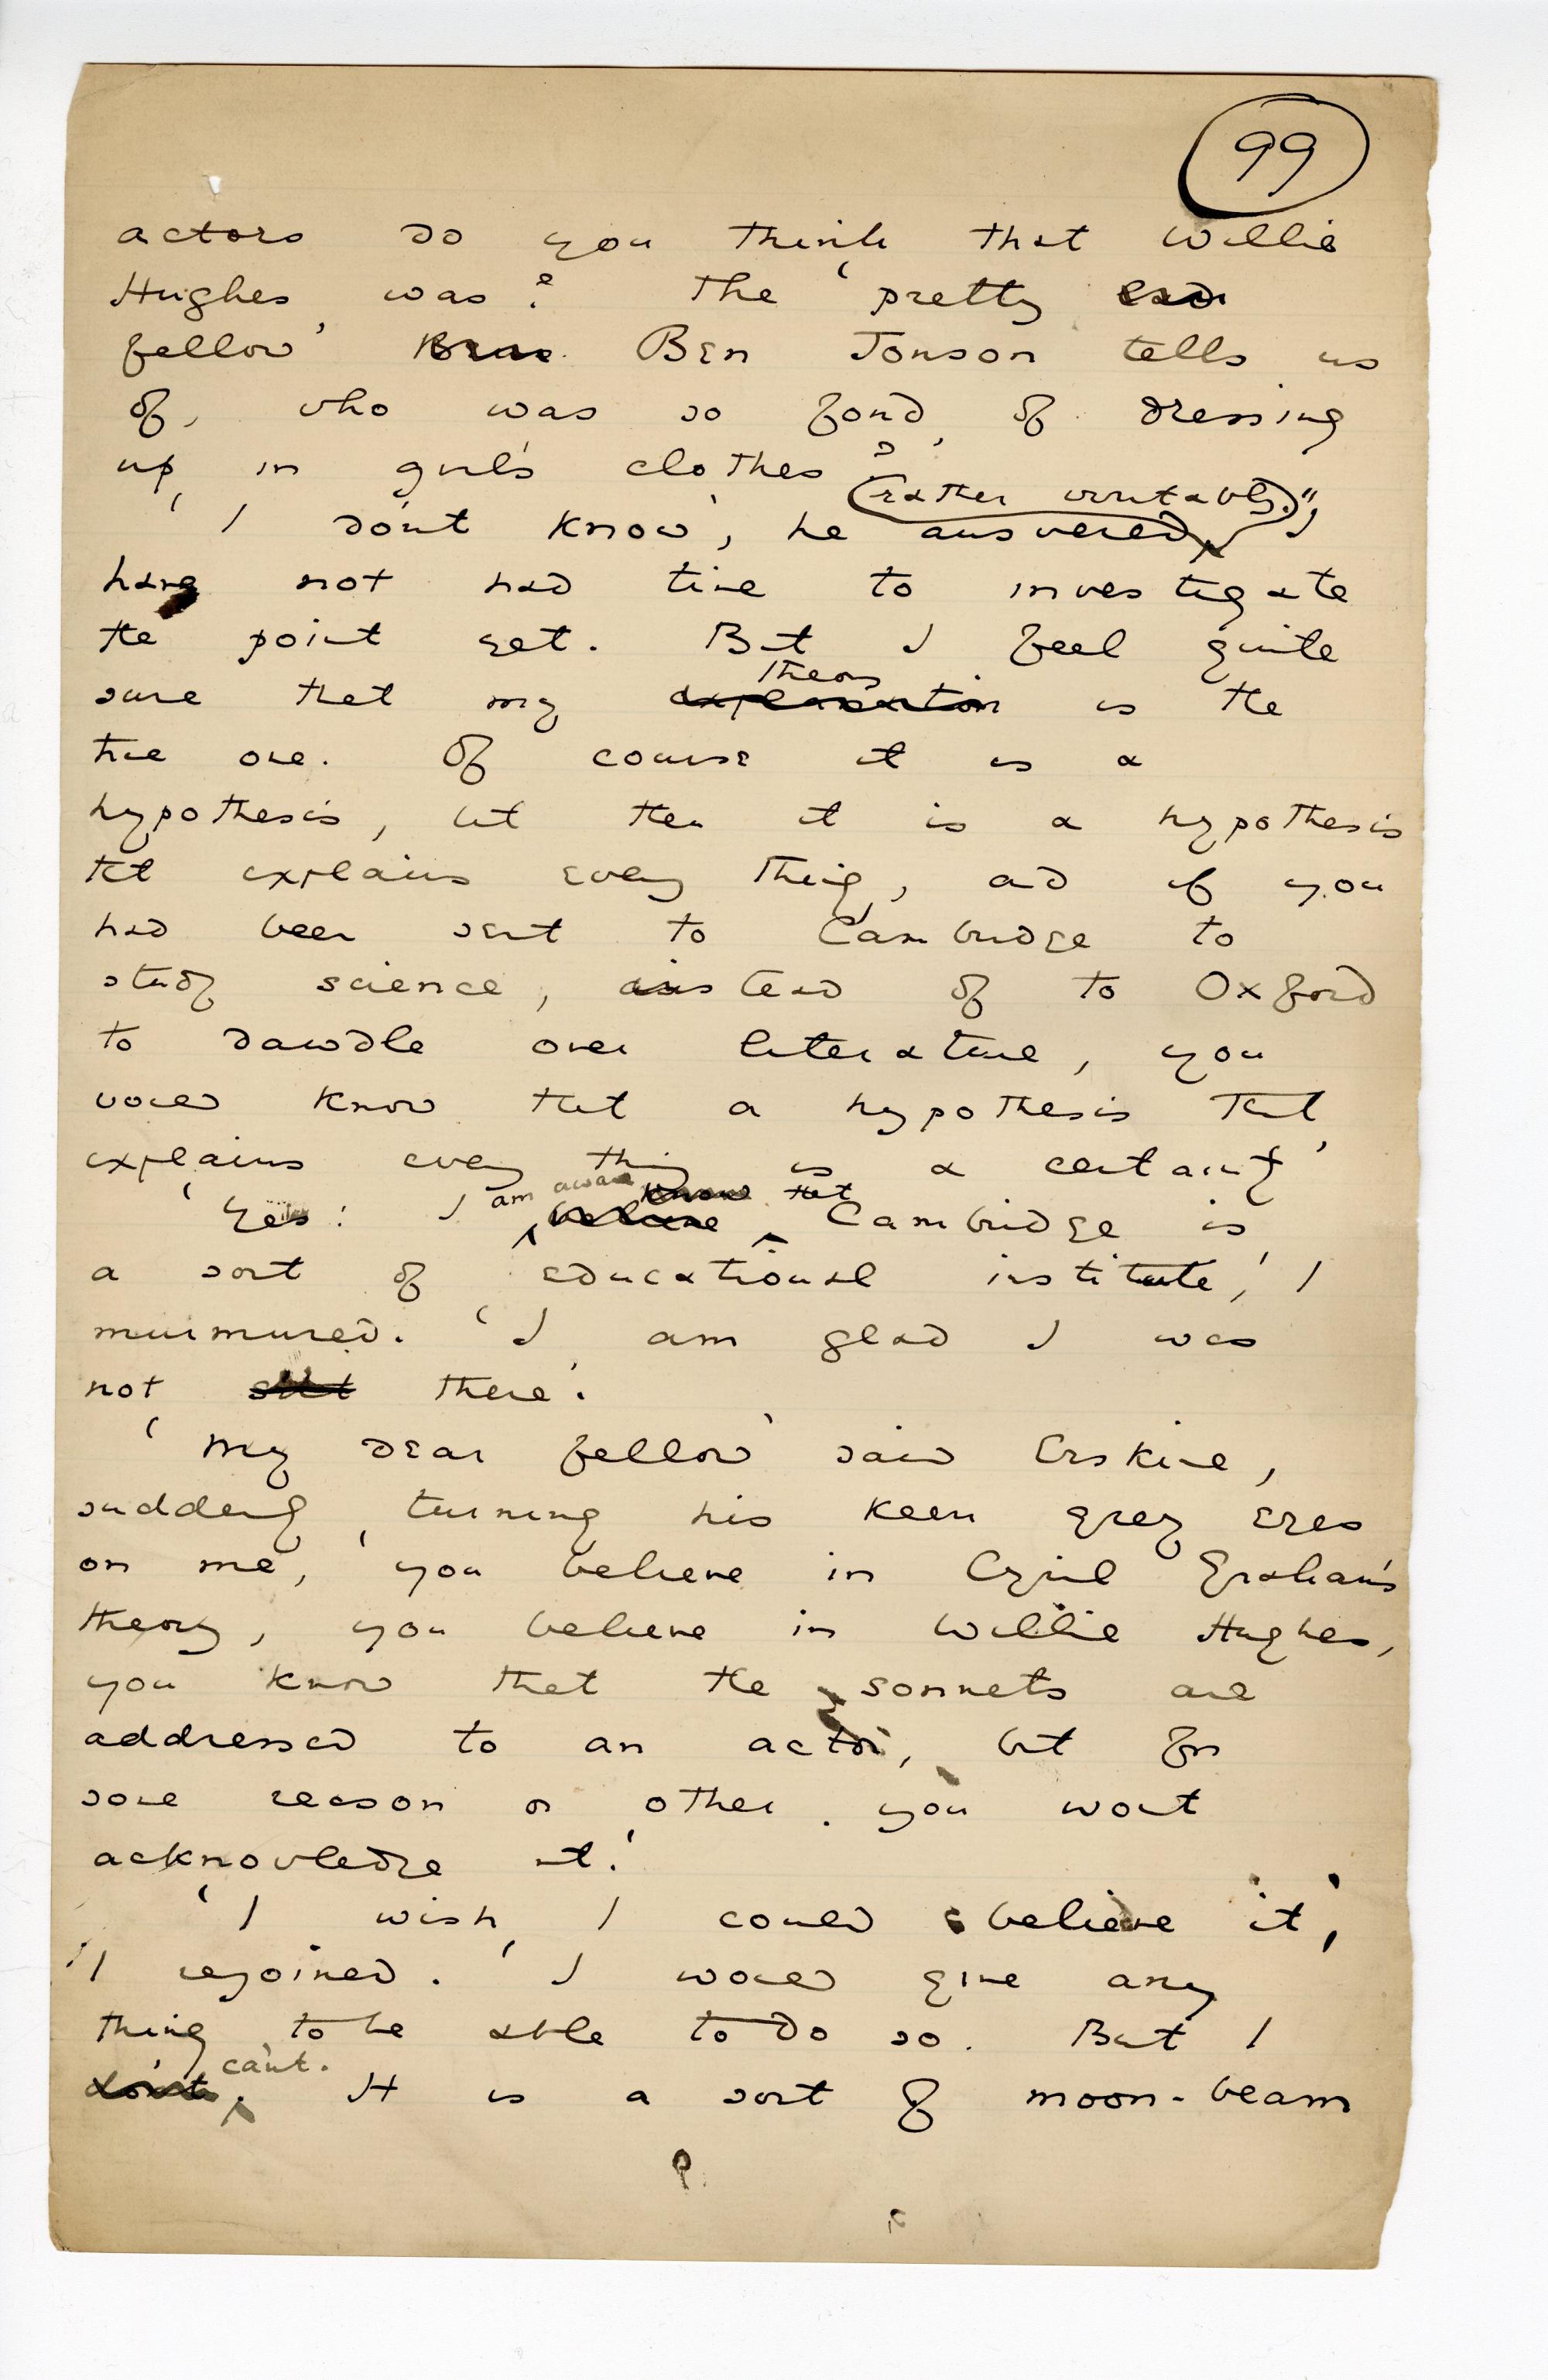 99
actors do you think that Willie
Hughes was? The 'pretty
fellow' Ben Jonson tells us
of, who was so fond of dressing
up in girl's clothes?'
rather irritably."
'I don't know', he answered, 'I
have not had time to investigate
the point yet. But I feel quite
theory
sure that my explanation is the
true one. Of course it is a
hypothesis, but then it is a hypothesis
that explains every thing, and if you
had been sent to Cambridge to
study science, instead of to Oxford
to dawdle over literature, you
would know that a hypothesis that
explains every thing is a certainty'
am aware know that
'Yes: I believe Cambridge is
a sort of educational institute,' I
murmured. 'I am glad I was
not sent there'.
'My dear fellow' said Erskine,
suddenly turning his keen grey eyes
on me, 'you believe in Cyril Graham's
theory, you believe in Willie Hughes,
you know that the sonnets are
addressed to an actor, but for
some reason or other you won't
acknowledge it.'
'I wish I could believe it',
I rejoined. 'I would give any
thing to be able to do so. But I
can't.
don't. It is a sort of moon-beam